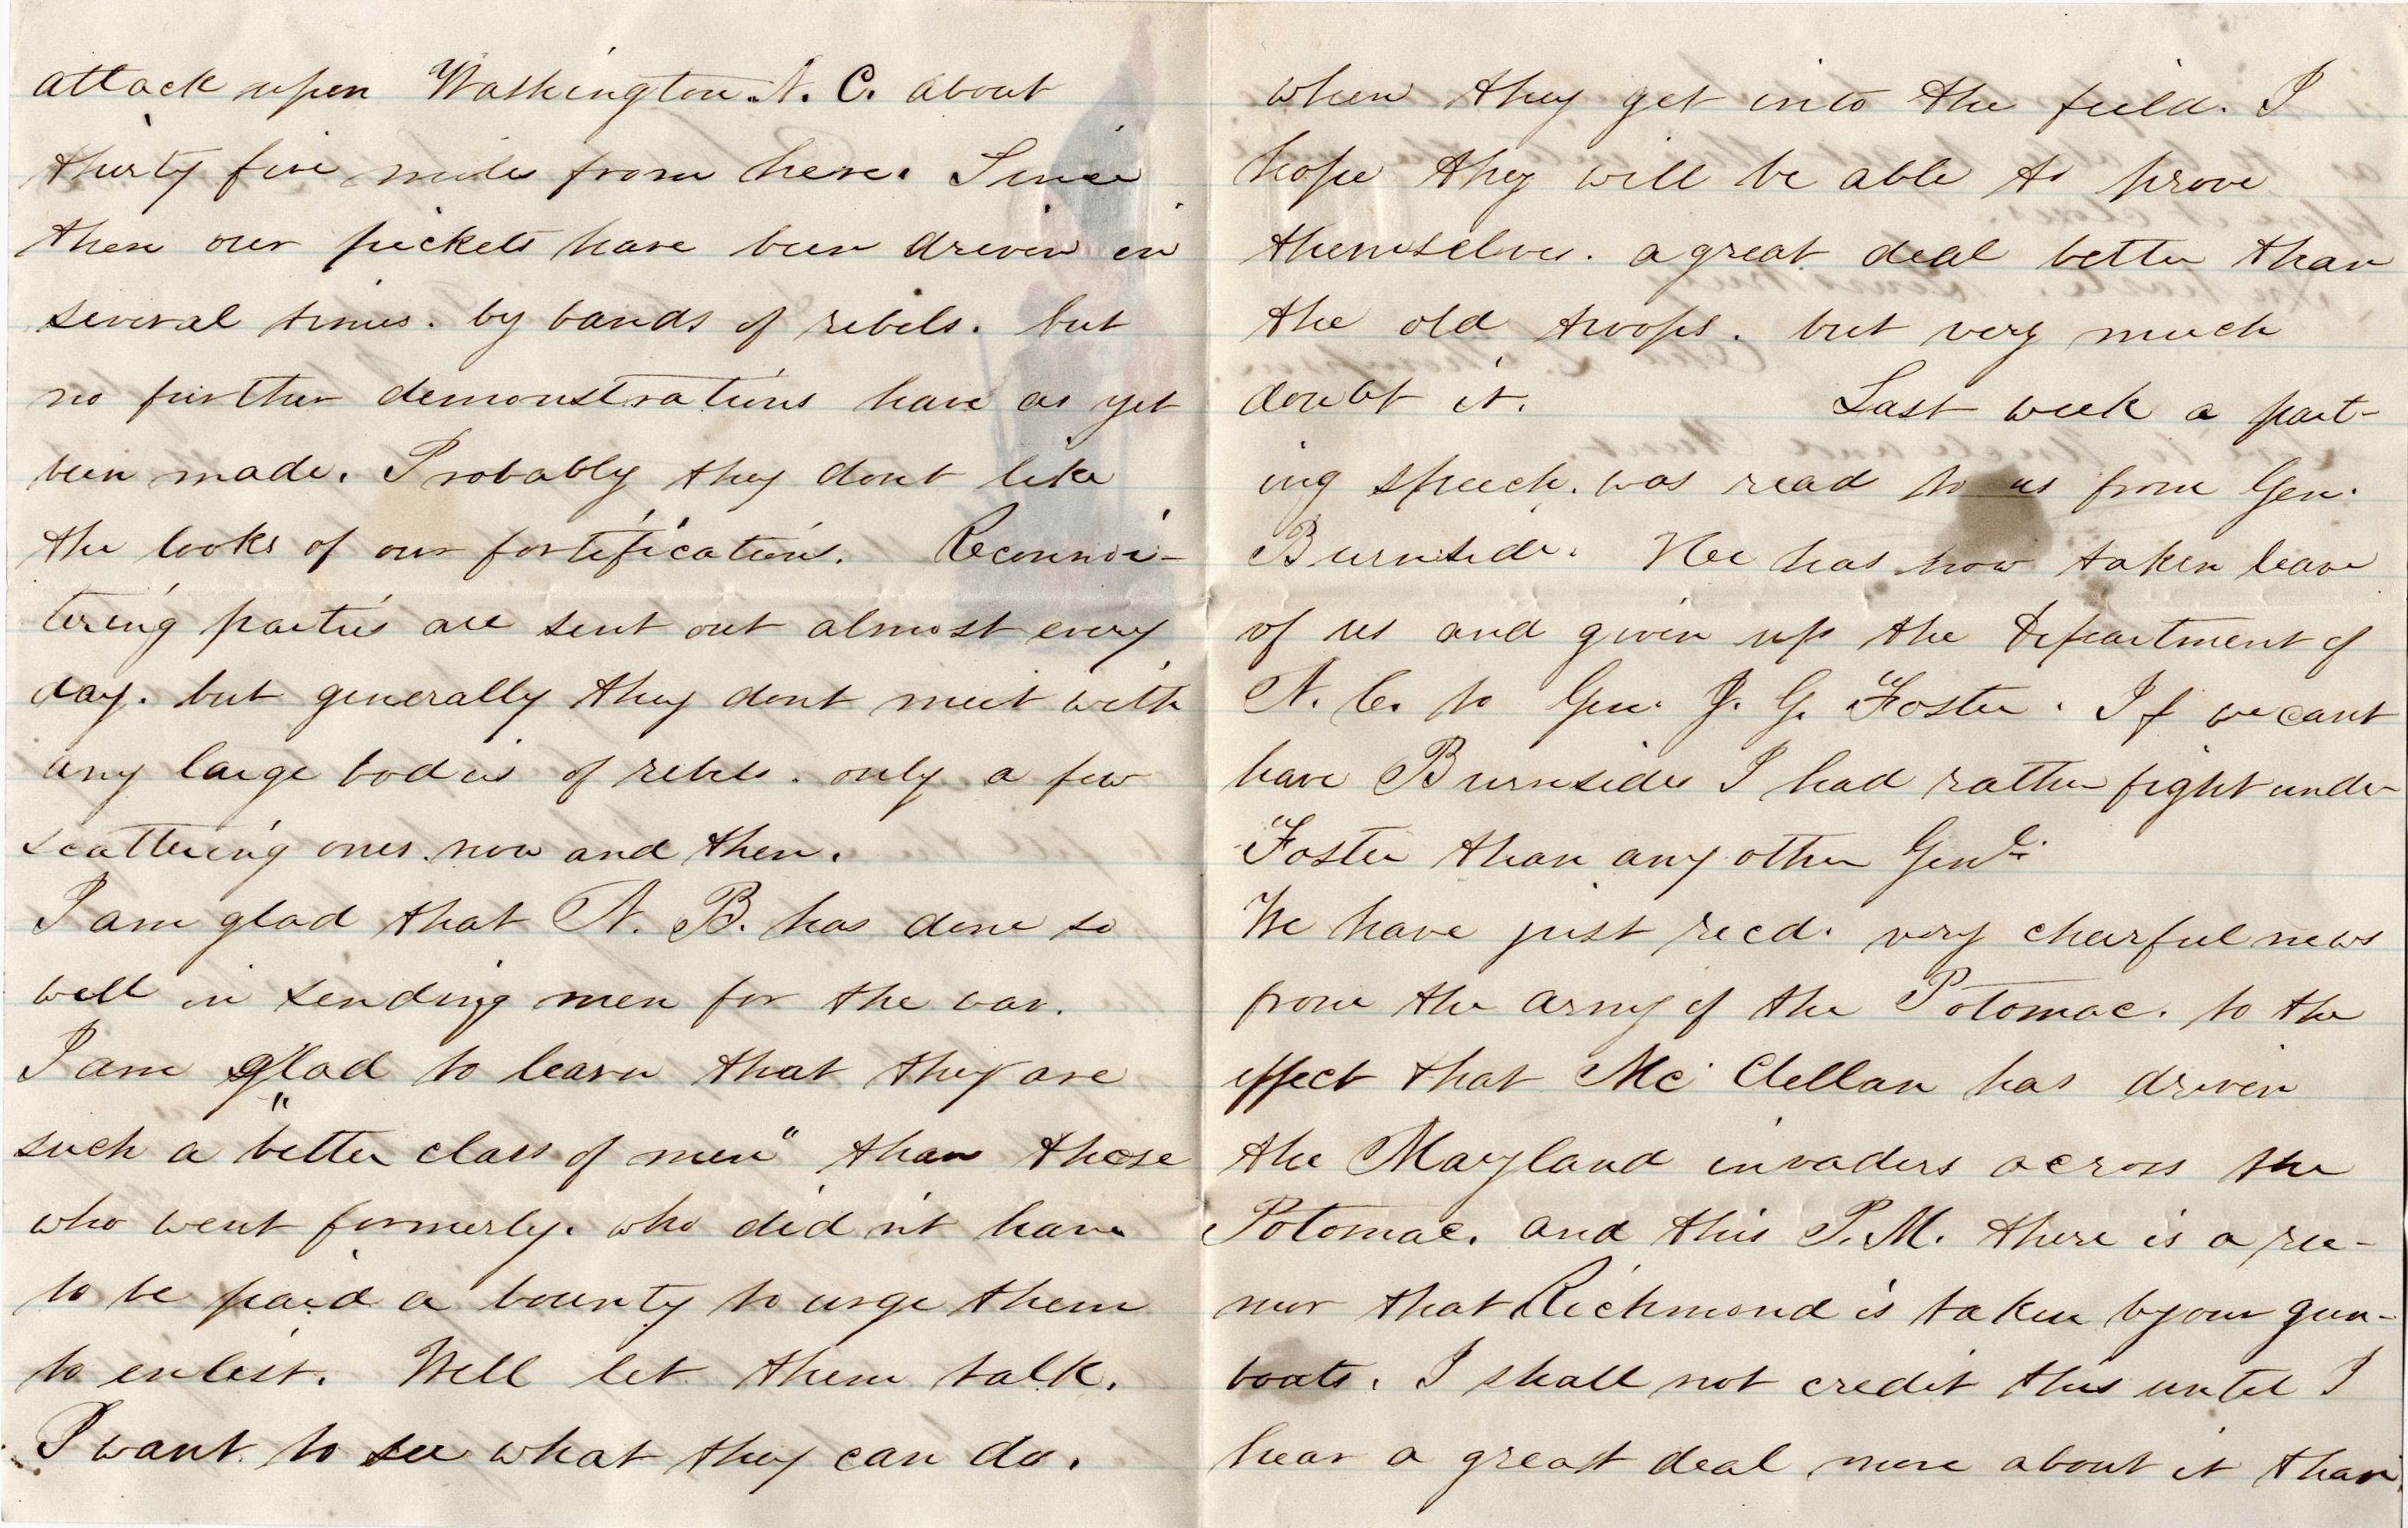 attack upon Washington N. C. about
thirty five miles from here. Since
then our pickets have been driven in
several times. by bands of rebels. but
no further demonstrations have as yet
been made. Probably they dont like
the looks of our fortifications. Reconnoi-
tering parties are sent out almost every
day. but generally they dont meet with
any large bodies of rebels. only a few
scattering ones now and then.
I am glad that N. B. has done so
well in sending men for the war.
I am glad to learn that they are
such a "better class of men" than those
who went formerly. who did n't have
to be paid a bounty to urge them
to enlist. Well let them talk.
I want to see what they can do.
when they get into the field. I
hope they will be able to prove
themselves. a great deal better than
the old troops. but very much
doubt it. Last week a part-
ing speech. was read to us from Gen.
Burnside. He has now taken leave
of us and given up the Department of
N. C. to Gen. J. G. Foster. If we cant
have Burnsides I had rather fight under
Foster than any other Genl.
We have just recd. very cheerful news
from the army of the Potomac. to the
effect that Mc Clellan has driven
the Maryland invaders across the
Potomac. and this P. M. there is a ru-
mor that Richmond is taken by our gun-
boats. I shall not credit this until I
hear a great deal more about it than